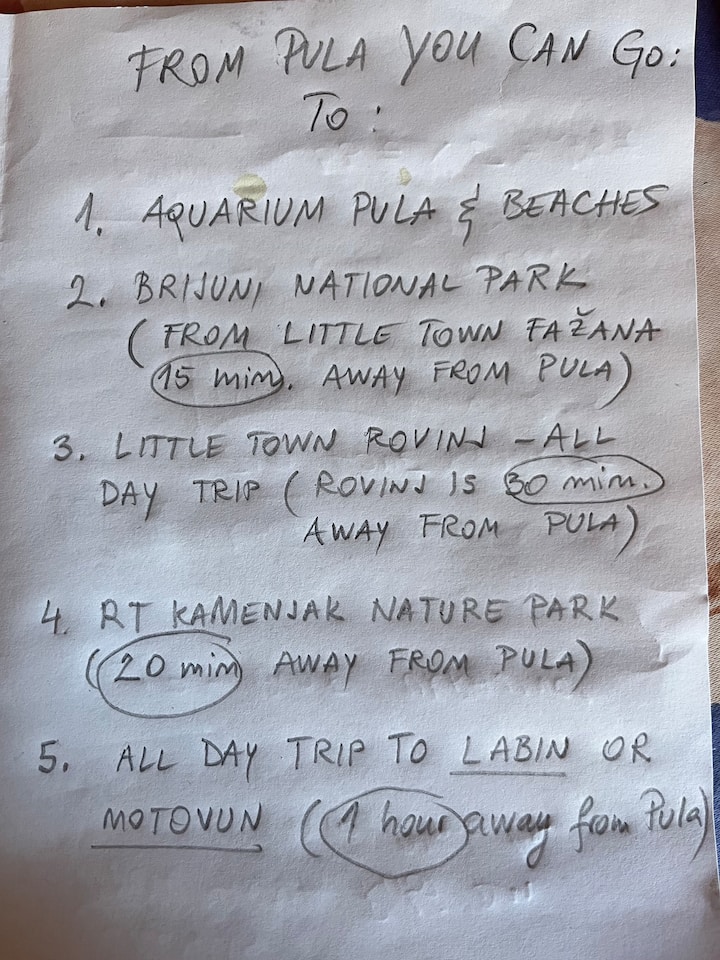 FROM PULA YOU CAN GO:
TO:
1. AQUARIUM PULA & BEACHES
2. BRIJUNI NATIONAL PARK
(FROM LITTLE TOWN FAŽANA
15 min. AWAY FROM PULA)
3. LITTLE TOWN ROVINJ - ALL
DAY TRIP (ROVINJ IS 30 min.
AWAY FROM PULA)
4. RT KAMENJAK NATURE PARK
(20 min AWAY FROM PULA)
5. ALL DAY TRIP TO LABIN OR
MOTOVUN (1 hour away from Pula)